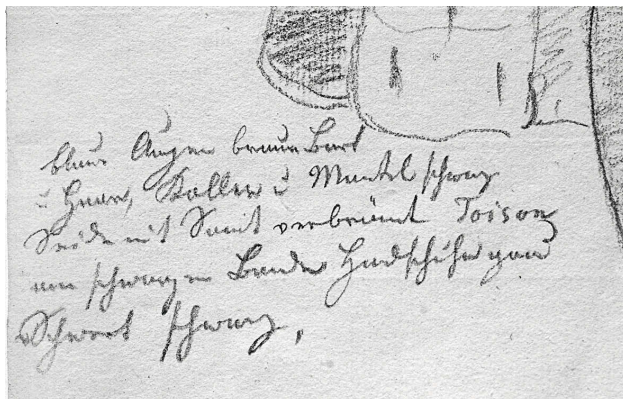 blaue Augen brauner Bart
u Haar, Koller u Mantel schwarz
Seide mit Samt verbrämt Toison
am schwarzen Bande Handschuhe grau
Schwert schwarz,